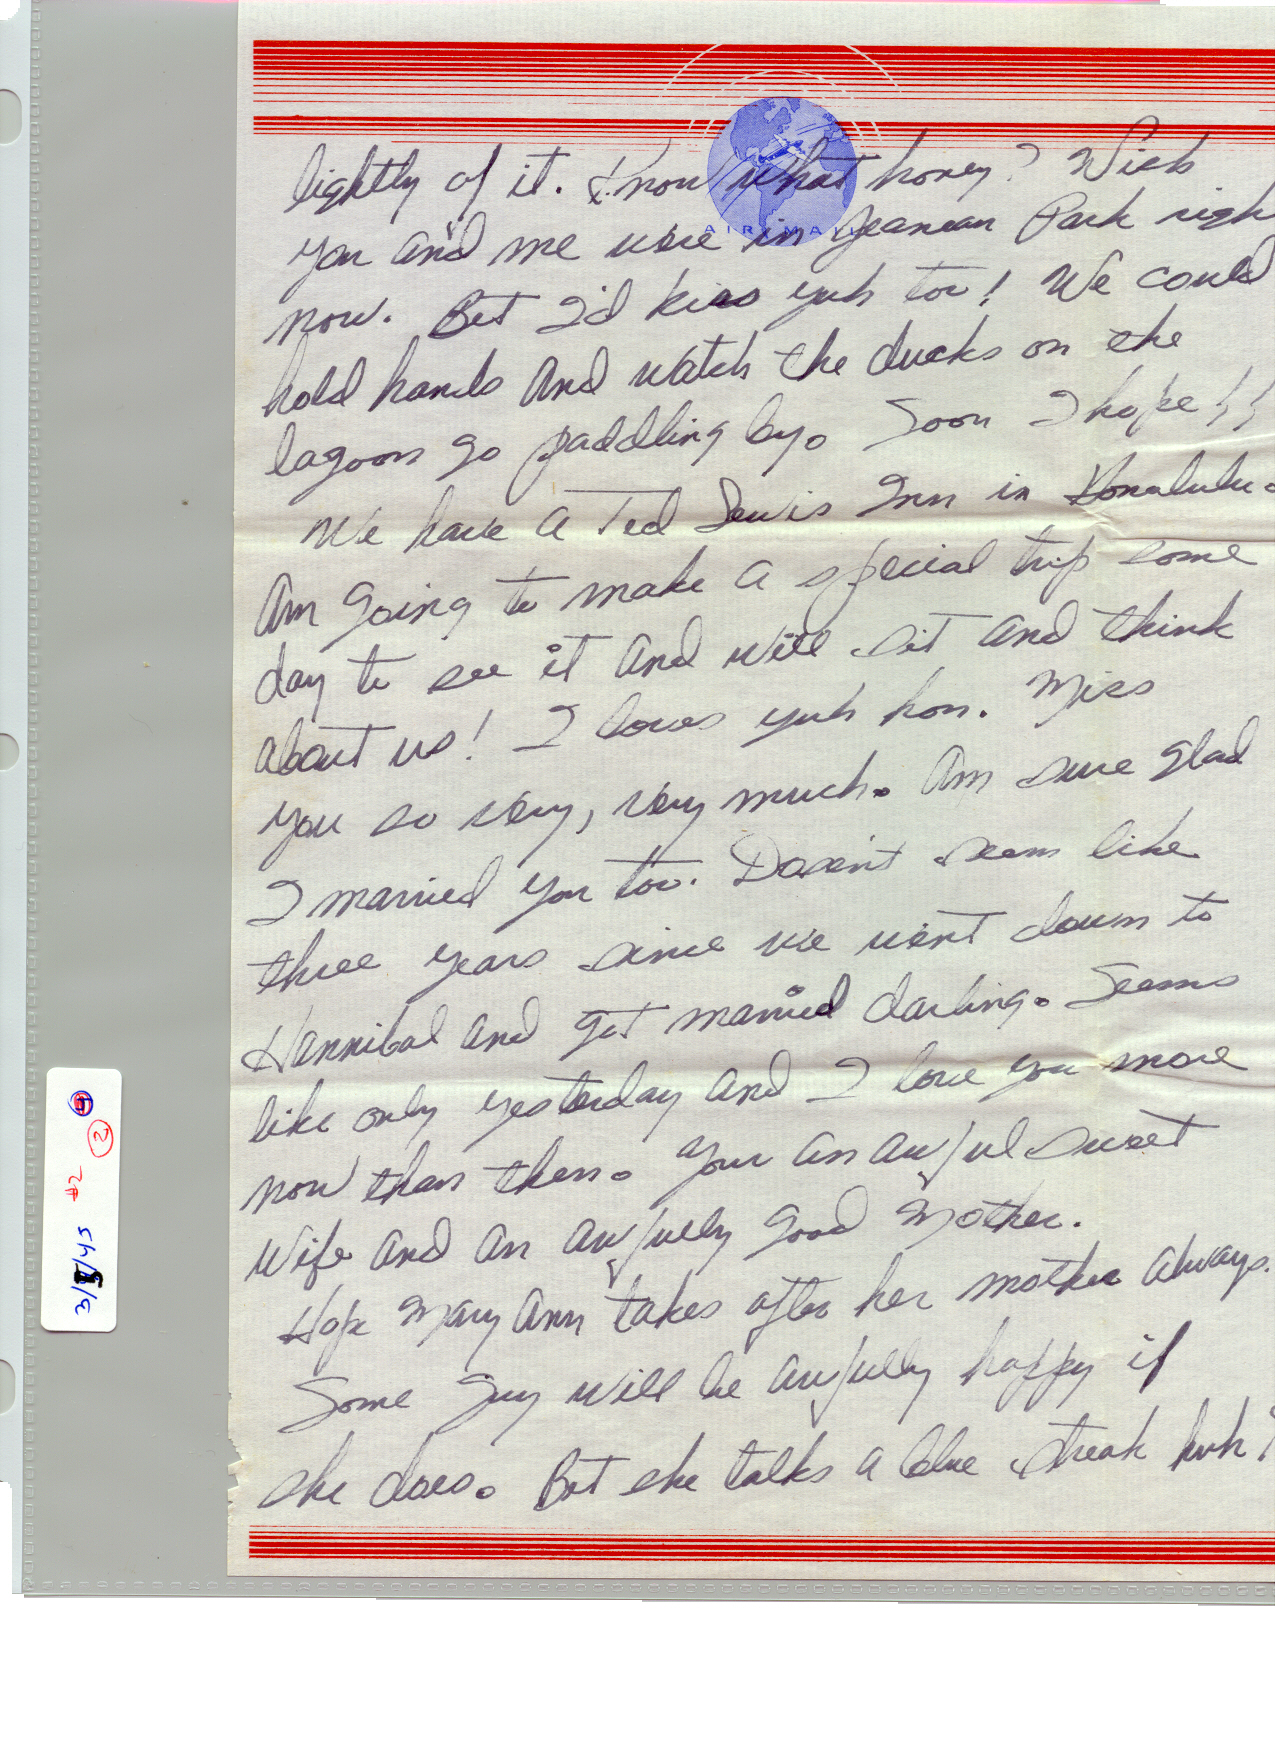 lightly of it. Know what honey? Wish
AIR MAIL
you and me were in Park righ
now. Bet I'd kiss yuh too! We could
hold hands and watch the ducks on the
lagoon go paddling by. Soon I hope!!
We have a Ted Lewis Inn in Honolulu.
Am going to make a special trip some
day to see it and will sit and think
about us! I loves yuh hon. Miss
you so very, very much. Am sure glad
I married you too. Dosen't seem like
three years since we went down to
Hannibal and got married darling. Seems
like only yesterday and I love you more
now than then. Your an awful sweet
wife and an awfully good mother.
Hope Mary Ann takes after her mother always.
Some guy will be awfully happy if
she does. But she talks a blue streak huh?
#2 2